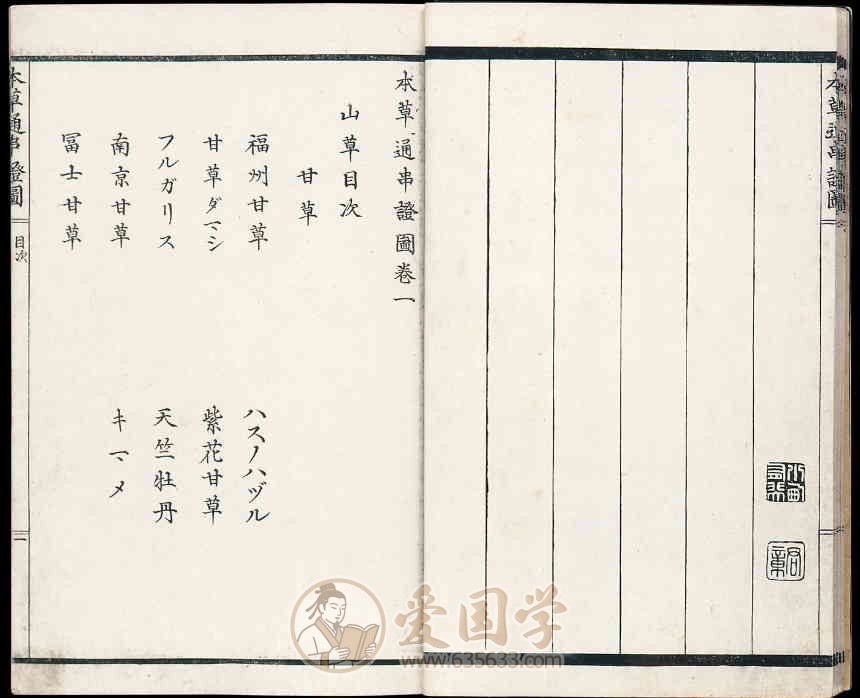 本草通串證圖
本草通串證圖卷一
山草目次
甘草
福州甘草
ハスノハヅル
甘草ダマシ
紫花甘草
フルガリス
天竺牡丹
南京甘草
キマメ
冨士甘草
本草通串證圖
目次
一
爱国学
www.635633.com